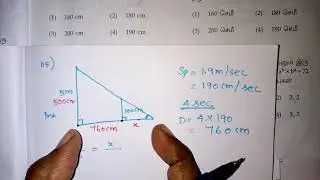 (1) 160 cm (2) 180 cm
(3) 200 cm (4) 190 cm
(1) 160 செமீ (2) 180 செமீ
(3) 200 செமீ (4) 190 செமீ
115)
5m
500cm
100cm
760cm x
= x
Sp = 1.9m/sec
= 190 cm/sec
4 sec
D = 4 × 190
= 760 cm
(2) 3, 2
(4) 3,